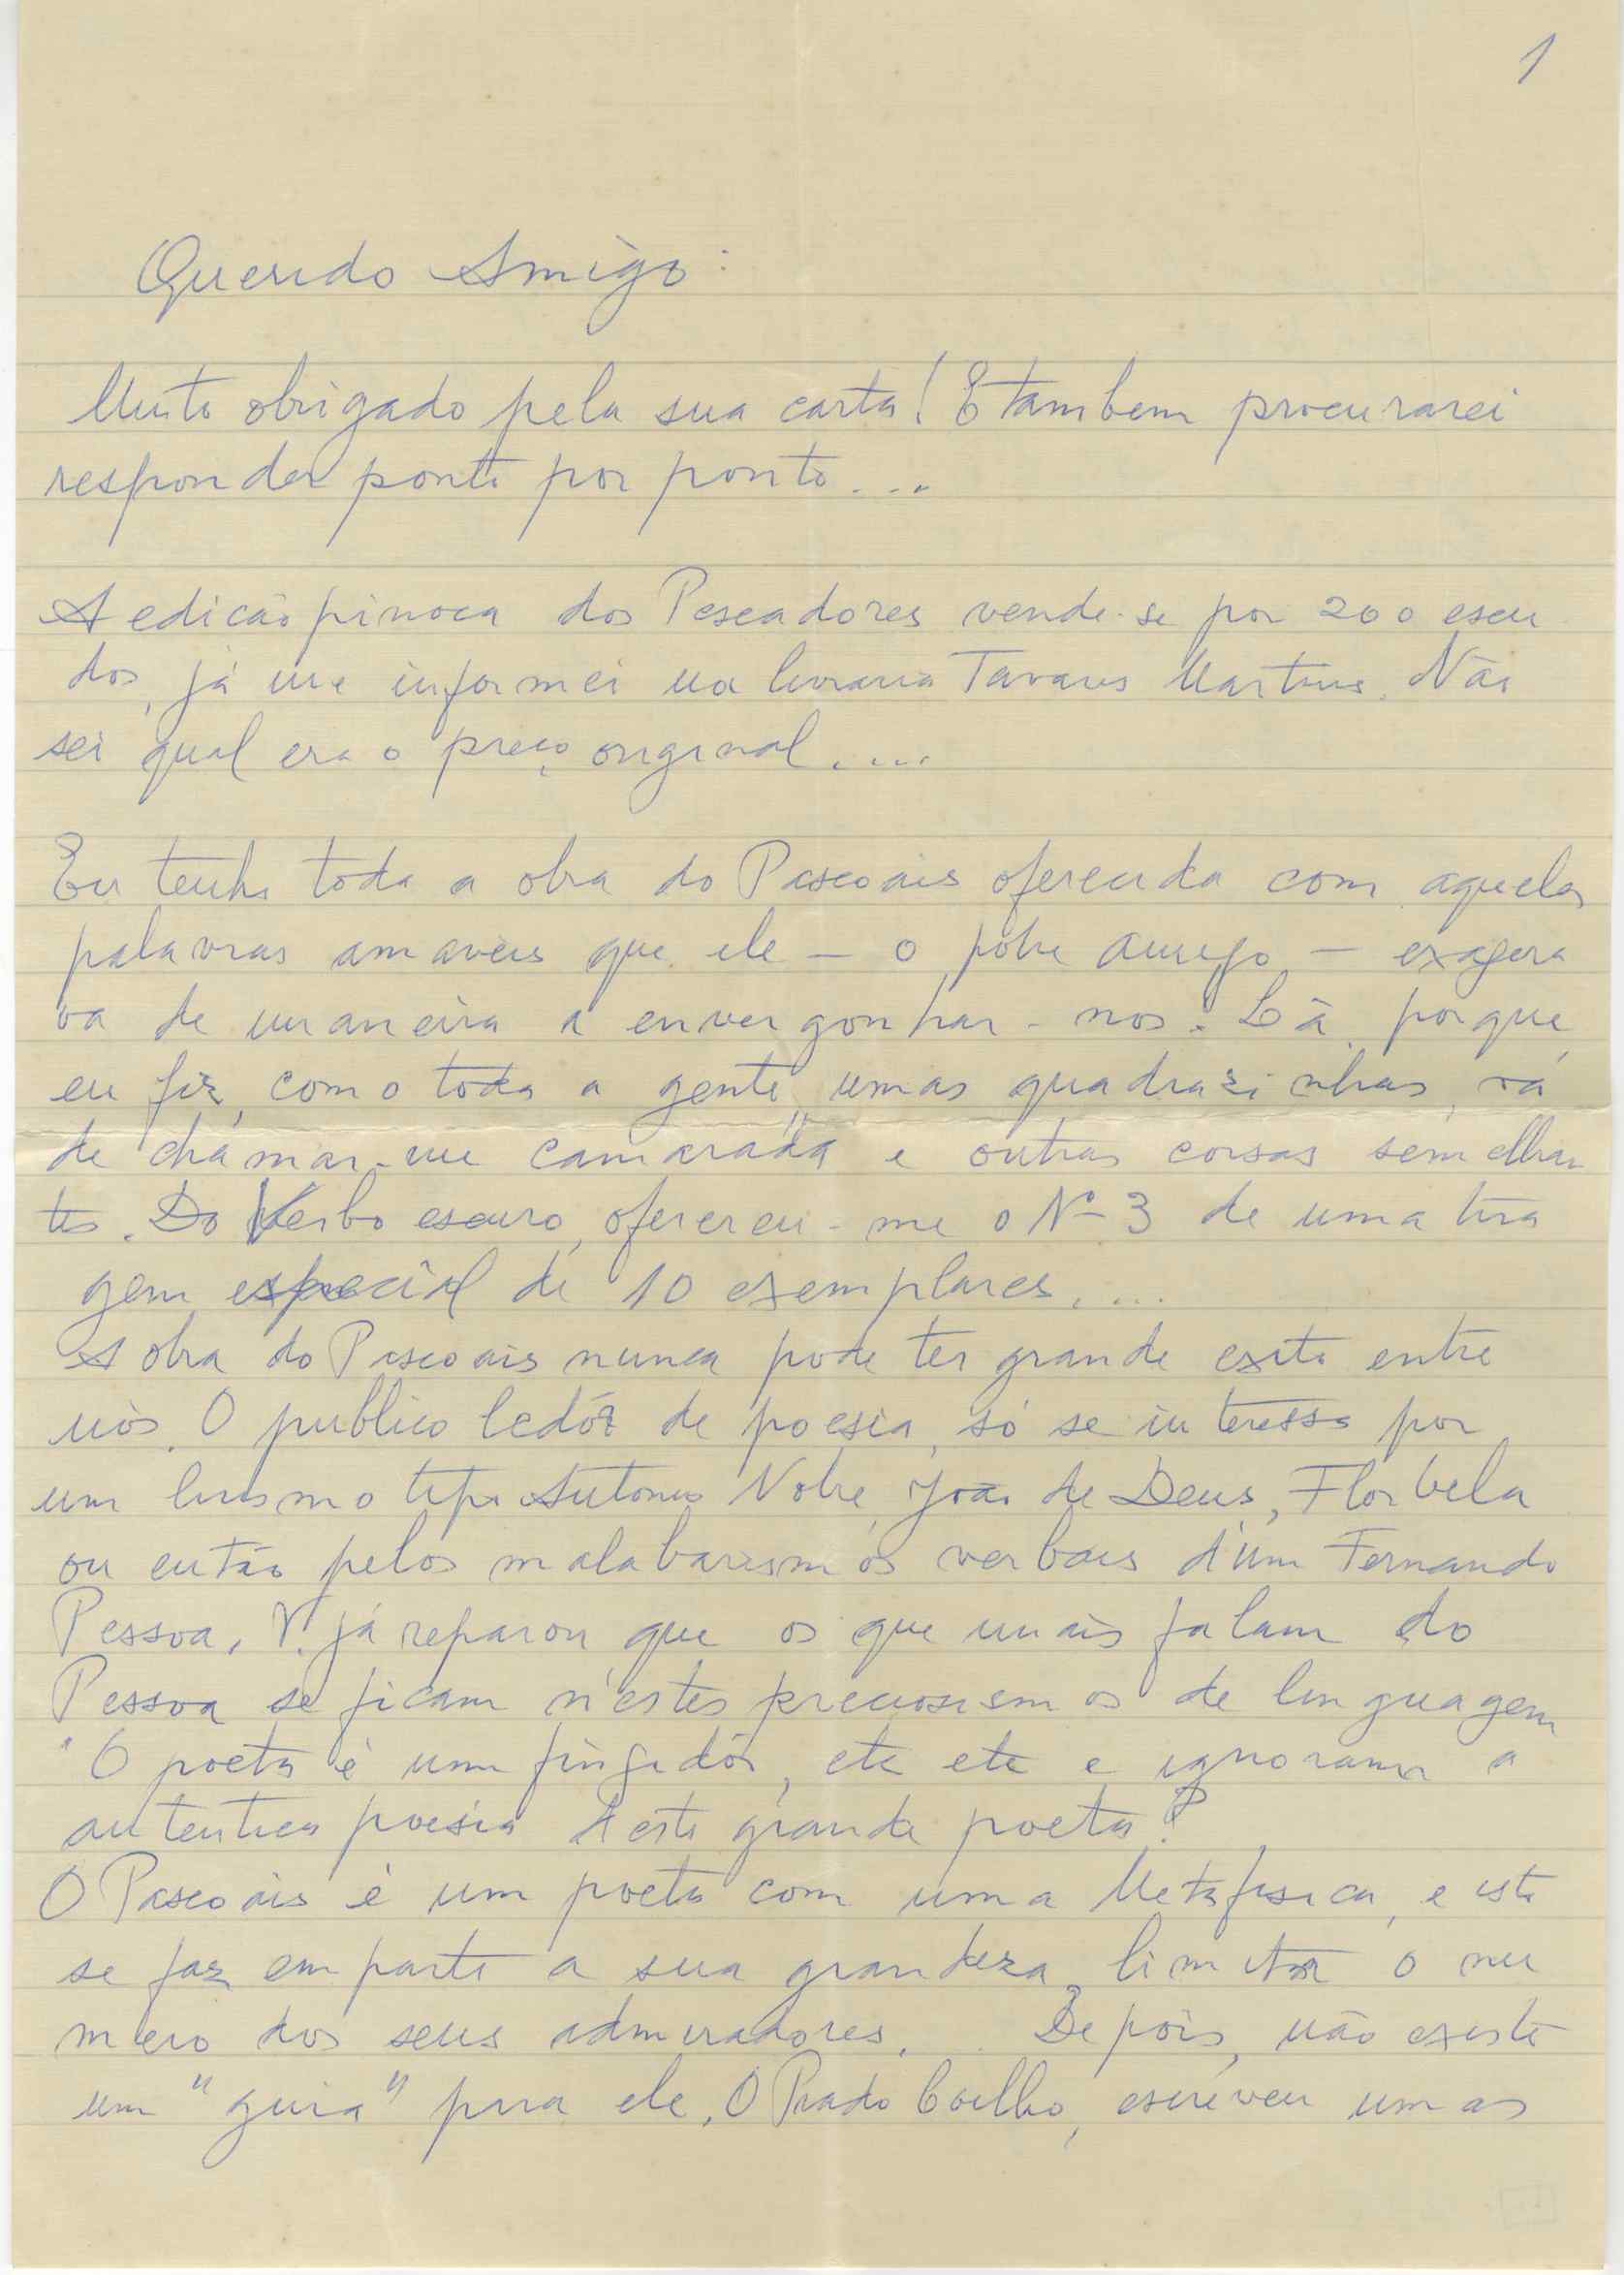 1
Querido Amigo:
Muito obrigado pela sua carta! E tambem procurarei
responder ponto por ponto....
A edicão pinoca dos Pescadores vende-se por 200 escu
dos, já me informei na livraria Tavares Martins. Não
sei qual era o preço original....
Eu tenho toda a obra do Pascoais oferecida com aquelas
palavras amaveis que ele — o pobre amigo — exagera
va de maneira a envergonhar-nos. Lá porque
eu fiz, como toda a gente, umas quadrazinhas, vá
de chamar-me "camarada" e outras coisas semelhan
tes. Do Verbo escuro, ofereceu-me o Nº 3 de uma tira
gem especial de 10 exemplares....
A obra do Pascoais nunca pode ter grande exito entre
nós. O publico ledôr de poesia, só se interessa por
um lirismo tipo Antonio Nobre, João de Deus, Florbela
ou então pelos malabarismos verbais d'um Fernando
Pessoa. V. já reparou que os que mais falam do
Pessoa se ficam n'estes preciosismos de linguagem
"O poeta é um fingidôr, etc etc e ignoram a
autentica poesia deste grande poeta?
O Pascoais é um poeta com uma Metafisica, e isto
se faz em parte a sua grandeza, limita o nu
mero dos seus admiradores. Depois, não existe
um "guia" para ele. O Prado Coelho, escreveu umas